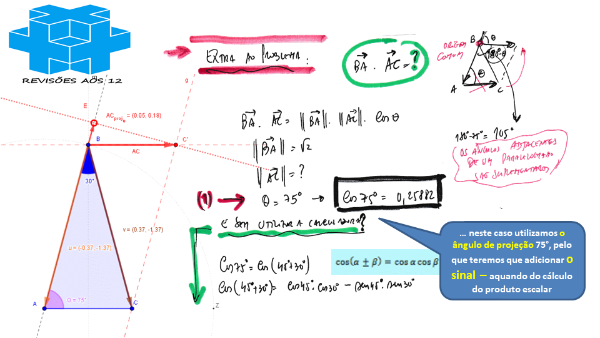 REVISÕES AÒS 12
EXTRA AO PROBLEMA:
BA . AC = ?
ORIGEM
COMUM
B
θ
A
C
180°-75° = 105°
OS ÂNGULOS ADJACENTES
DE UM PARALELOGRAMO
SÃO SUPLEMENTARES
BA . AC = ||BA|| . ||AC|| . Cos θ
||BA|| = √2
||AC|| = ?
(1) → θ = 75° → Cos 75° = 0,25882
E SEM UTILIZAR A CALCULADORA?
Cos 75° = Cos (45°+30°)
Cos (45°+30°) = Cos 45° . Cos 30° - sen 45° . sen 30°
cos(α ± β) = cos α cos β
... neste caso utilizamos o
ângulo de projeção 75°, pelo
que teremos que adicionar O
sinal – aquando do cálculo
do produto escalar
E
= (0.05, 0.18)
B
C'
AC
30°
v = (0.37, -1.37)
u = (-0.37, -1.37)
A
= 75°
C